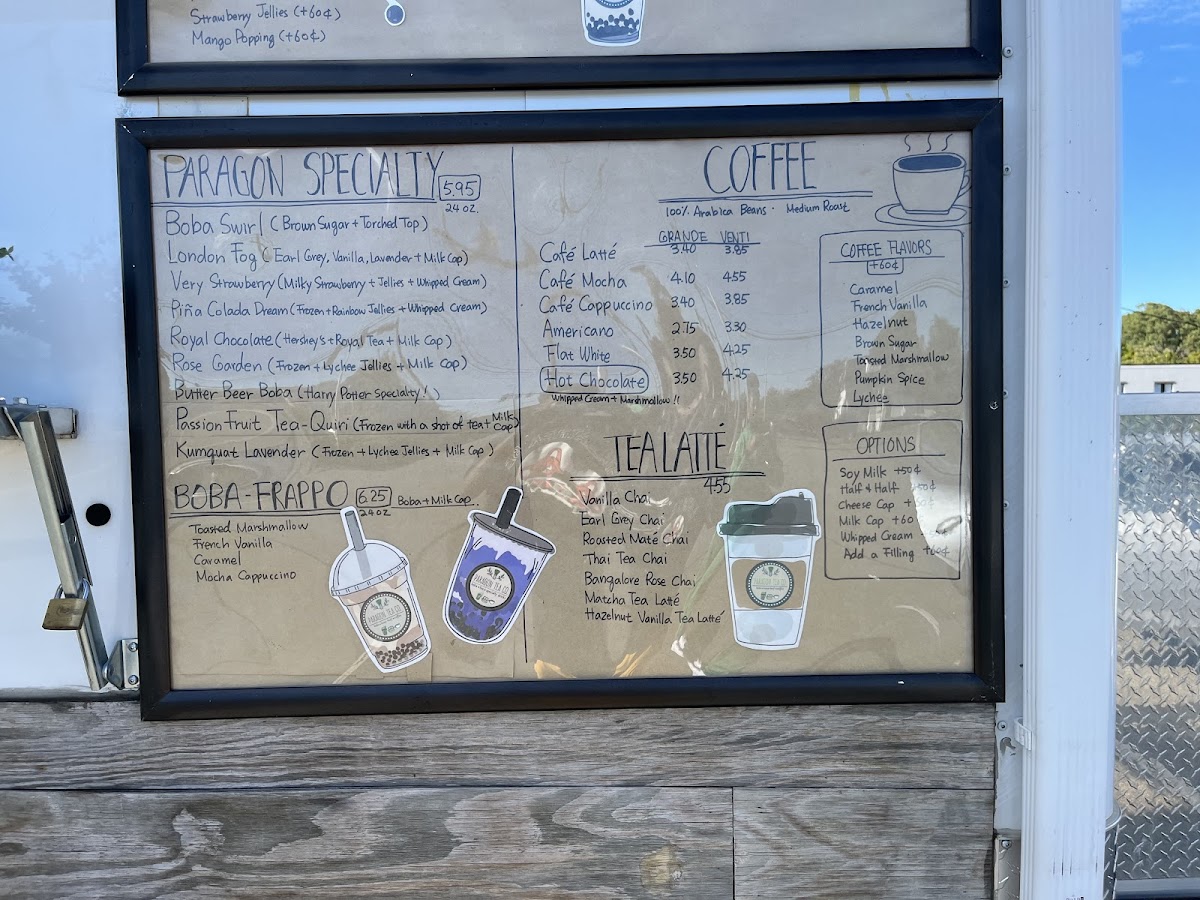 Strawberry Jellies (+60¢)
Mango Popping (+60¢)
PARAGON SPECIALTY 5.95
24 OZ.
Boba Swirl (Brown Sugar + Torched Top)
London Fog (Earl Grey, Vanilla, Lavender + Milk Cap)
Very Strawberry (Milky Strawberry + Jellies + Whipped Cream)
Piña Colada Dream (Frozen + Rainbow Jellies + Whipped Cream)
Royal Chocolate (Hershey's + Royal Tea + Milk Cap)
Rose Garden (Frozen + Lychee Jellies + Milk Cap)
Butter Beer Boba (Harry Potter Specialty!)
Passion Fruit Tea-Quiri (Frozen with a shot of tea + Milk Cap)
Kumquat Lavender (Frozen + Lychee Jellies + Milk Cap)
BOBA-FRAPPO 6.25 Boba + Milk Cap
24 OZ
Toasted Marshmallow
French Vanilla
Caramel
Mocha Cappuccino
COFFEE
100% Arabica Beans · Medium Roast
GRANDE VENTI
Café Latté 3.40 3.85
Café Mocha 4.10 4.55
Café Cappuccino 3.40 3.85
Americano 2.75 3.30
Flat White 3.50 4.25
Hot Chocolate 3.50 4.25
Whipped Cream + Marshmallow!!
TEA LATTÉ
4.55
Vanilla Chai
Earl Grey Chai
Roasted Maté Chai
Thai Tea Chai
Bangalore Rose Chai
Matcha Tea Latté
Hazelnut Vanilla Tea Latté
COFFEE FLAVORS
+60¢
Caramel
French Vanilla
Hazelnut
Brown Sugar
Toasted Marshmallow
Pumpkin Spice
Lychee
OPTIONS
Soy Milk +50¢
Half & Half
Cheese Cap +
Milk Cap +60
Whipped Cream
Add a Filling +60¢
PARAGON TEA CO
PARAGON TEA CO
PARAGON TEA CO